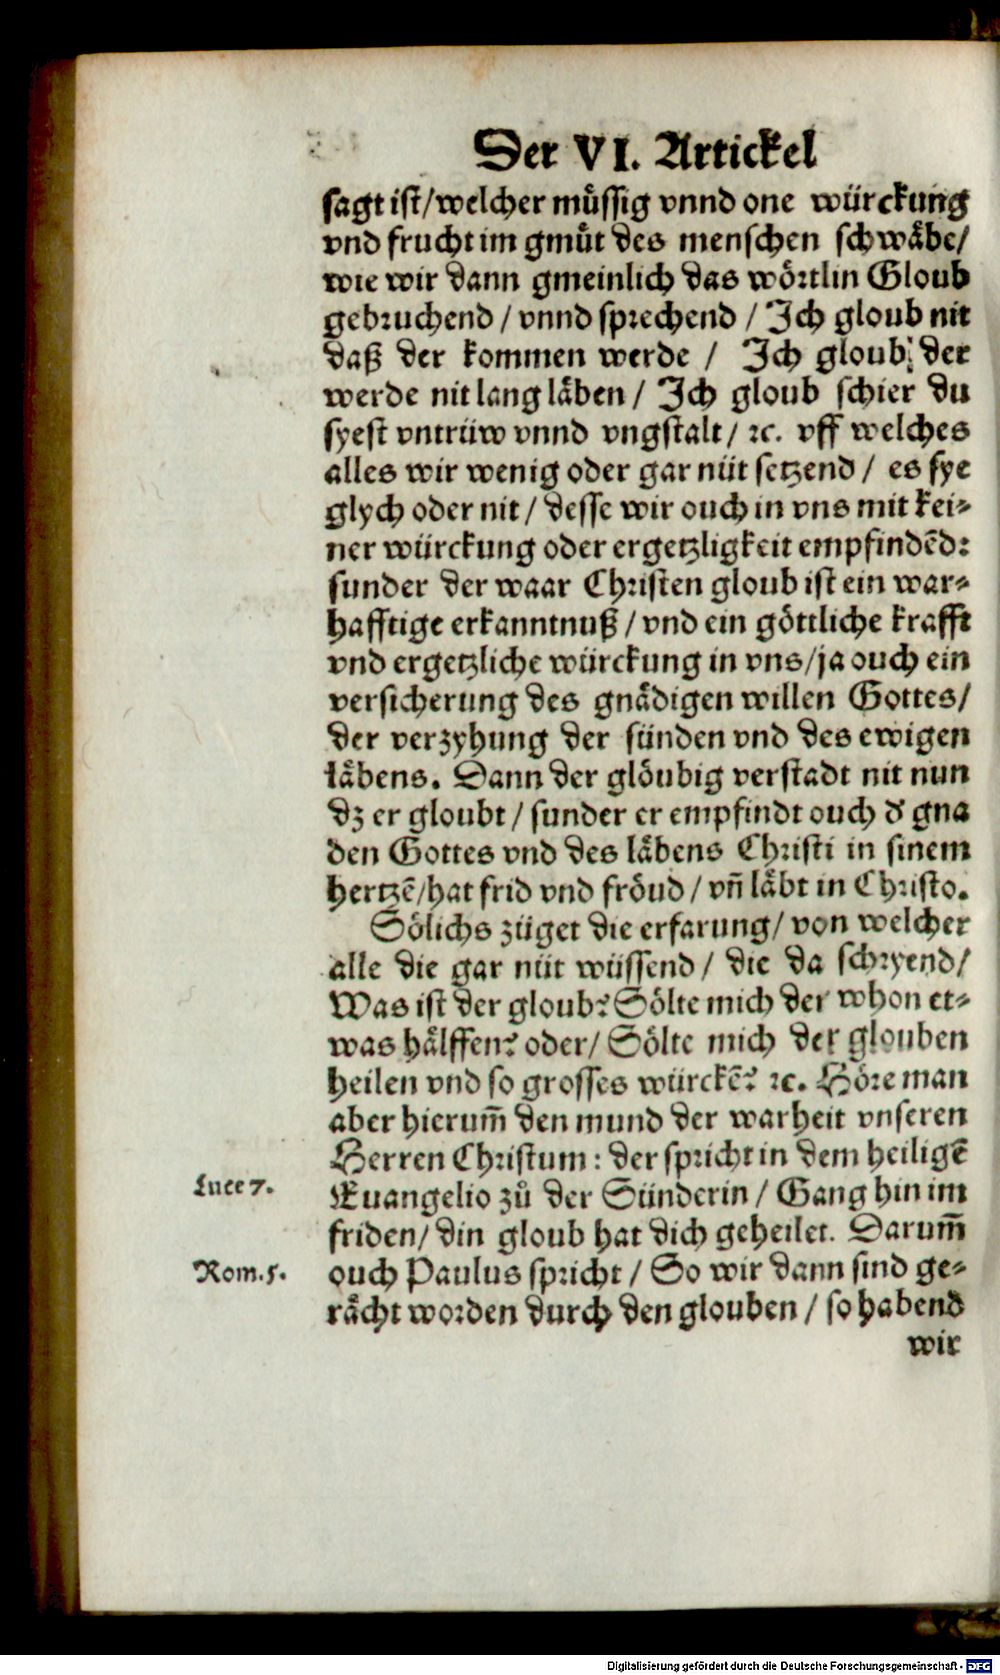 Der VI. Artickel
sagt ist/welcher müssig vnnd one würckung
vnd frucht im gmüt des menschen schwäbe/
wie wir dann gmeinlich das wörtlin Gloub
gebruchend / vnnd sprechend / Ich gloub nit
daß der kommen werde / Ich gloub der
werde nit lang läben / Ich gloub schier du
syest vntrüw vnnd vngstalt/ ꝛc. vff welches
alles wir wenig oder gar nüt setzend / es sye
glych oder nit / desse wir ouch in vns mit kei-
ner würckung oder ergetzligkeit empfindēd:
sunder der waar Christen gloub ist ein war-
hafftige erkanntnuß / vnd ein göttliche krafft
vnd ergetzliche würckung in vns/ja ouch ein
versicherung des gnädigen willen Gottes/
der verzyhung der sünden vnd des ewigen
läbens. Dann der glöubig verstadt nit nun
dz er gloubt / sunder er empfindt ouch d' gna
den Gottes vnd des läbens Christi in sinem
hertzē/hat frid vnd fröud / vn̄ läbt in Christo.
Sölichs züget die erfarung/ von welcher
alle die gar nüt wüssend / die da schryend/
Was ist der gloub? Sölte mich der whon et-
was hälffen? oder/ Sölte mich der glouben
heilen vnd so grosses würckē? ꝛc. Höre man
aber hierum̄ den mund der warheit vnseren
Herren Christum: der spricht in dem heiligē
Luce 7.
Euangelio zů der Sünderin / Gang hin im
friden/ din gloub hat dich geheilet. Darum̄
Rom. 5.
ouch Paulus spricht / So wir dann sind ge-
rächt worden durch den glouben / so habend
wir
Digitalisierung gefördert durch die Deutsche Forschungsgemeinschaft - DFG